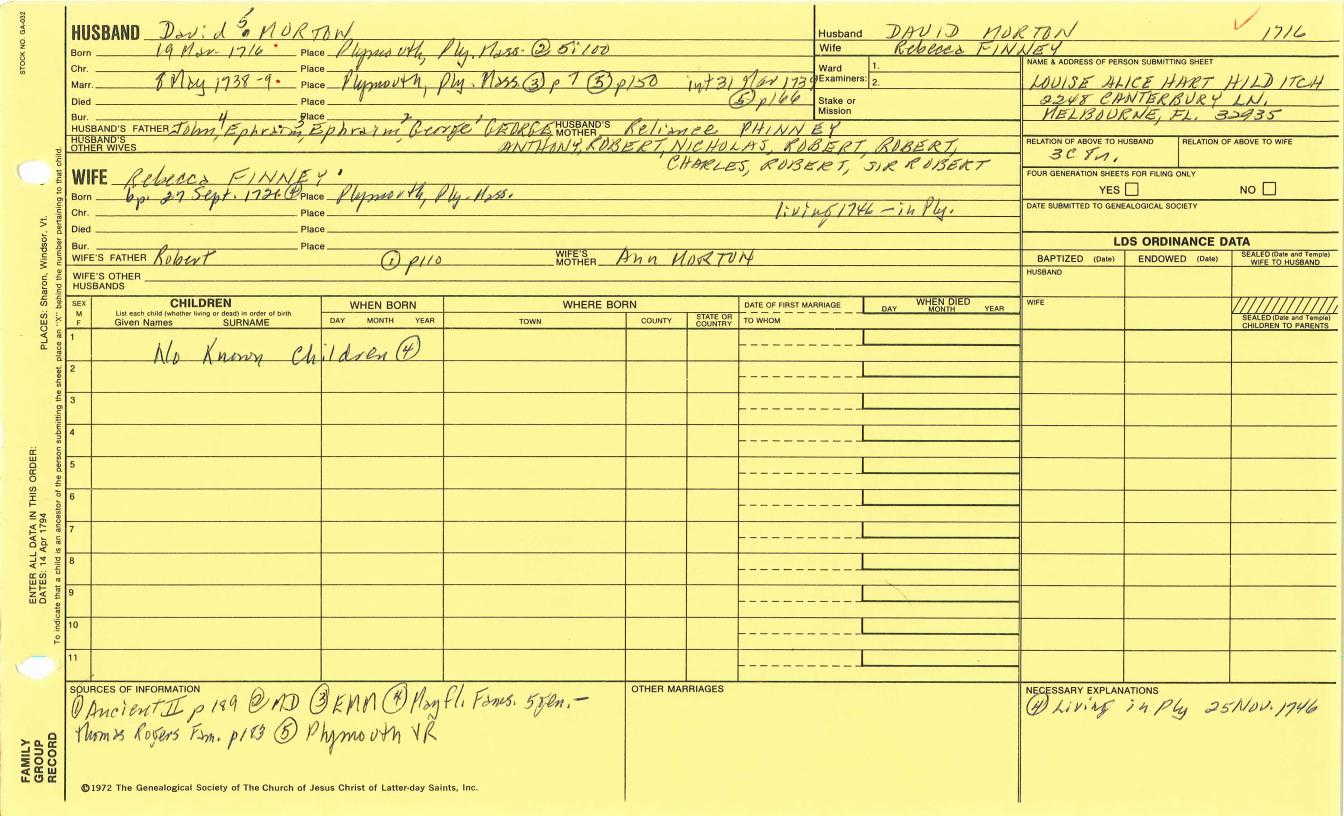 STOCK NO. GA-002
PLACES: Sharon, Windsor, Vt.
ENTER ALL DATA IN THIS ORDER:
DATES: 14 Apr 1794
To indicate that a child is an ancestor of the person submitting the sheet, place an "X" behind the number pertaining to that child.
FAMILY GROUP RECORD
HUSBAND David 5 MORTON
Born 19 Mar 1716 Place Plymouth, Ply. Mass. ② 5:100
Chr. Place
Marr. 8 May 1738-9 Place Plymouth, Ply. Mass. ③ p 7 ⑤ p150 int 31 Mar 1739
Died Place ⑤ p166
Bur. Place
HUSBAND'S FATHER John 4, Ephraim 3, Ephraim 2, George 1 GEORGE HUSBAND'S MOTHER Reliance PHINNEY
HUSBAND'S OTHER WIVES ANTHONY, ROBERT, NICHOLAS, ROBERT, ROBERT,
CHARLES, ROBERT, SIR ROBERT
WIFE Rebecca FINNEY
Born bp. 27 Sept. ④ Place Plymouth, Ply. Mass.
Chr. Place living 1746 - in Ply.
Died Place
Bur. Place
WIFE'S FATHER Robert ① p110 WIFE'S MOTHER Ann MORTON
WIFE'S OTHER HUSBANDS
Husband DAVID MORTON 1716
Wife Rebecca FINNEY
Ward 1.
Examiners: 2.
Stake or Mission
NAME & ADDRESS OF PERSON SUBMITTING SHEET
LOUISE ALICE HART HILDITCH
2248 CANTERBURY LN.
MELBOURNE, FL. 32935
RELATION OF ABOVE TO HUSBAND RELATION OF ABOVE TO WIFE
3C
FOUR GENERATION SHEETS FOR FILING ONLY
YES NO
DATE SUBMITTED TO GENEALOGICAL SOCIETY
LDS ORDINANCE DATA
BAPTIZED (Date) ENDOWED (Date) SEALED (Date and Temple) WIFE TO HUSBAND
HUSBAND
WIFE
SEALED (Date and Temple) CHILDREN TO PARENTS
SEX M F
CHILDREN
List each child (whether living or dead) in order of birth
Given Names SURNAME
WHEN BORN
DAY MONTH YEAR
WHERE BORN
TOWN COUNTY STATE OR COUNTRY
DATE OF FIRST MARRIAGE
TO WHOM
WHEN DIED
DAY MONTH YEAR
1
No Known Children ④
2
3
4
5
6
7
8
9
10
11
SOURCES OF INFORMATION
① Ancient II p 189 ② MD ③ EMM ④ Mayfl. Fams. 5 Gen. -
Thomas Rogers Fam. p183 ⑤ Plymouth VR
OTHER MARRIAGES
NECESSARY EXPLANATIONS
④ Living in Ply 25 Nov. 1746
©1972 The Genealogical Society of The Church of Jesus Christ of Latter-day Saints, Inc.